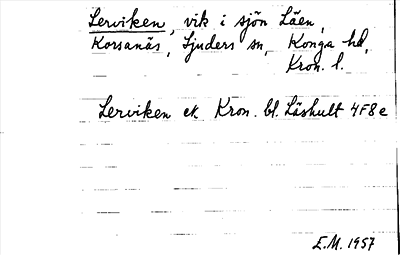 Lerviken, vik i sjön Läen,
Korsanäs, Ljuders sn, Konga hd,
Kron. l.
Lerviken ek. Kron. bl. Läshult 4F8e
E.M. 1957